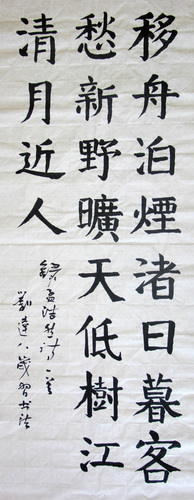 移舟泊煙渚日暮客
愁新野曠天低樹江
清月近人
錄孟浩然詩一首
劉達八歲習書法